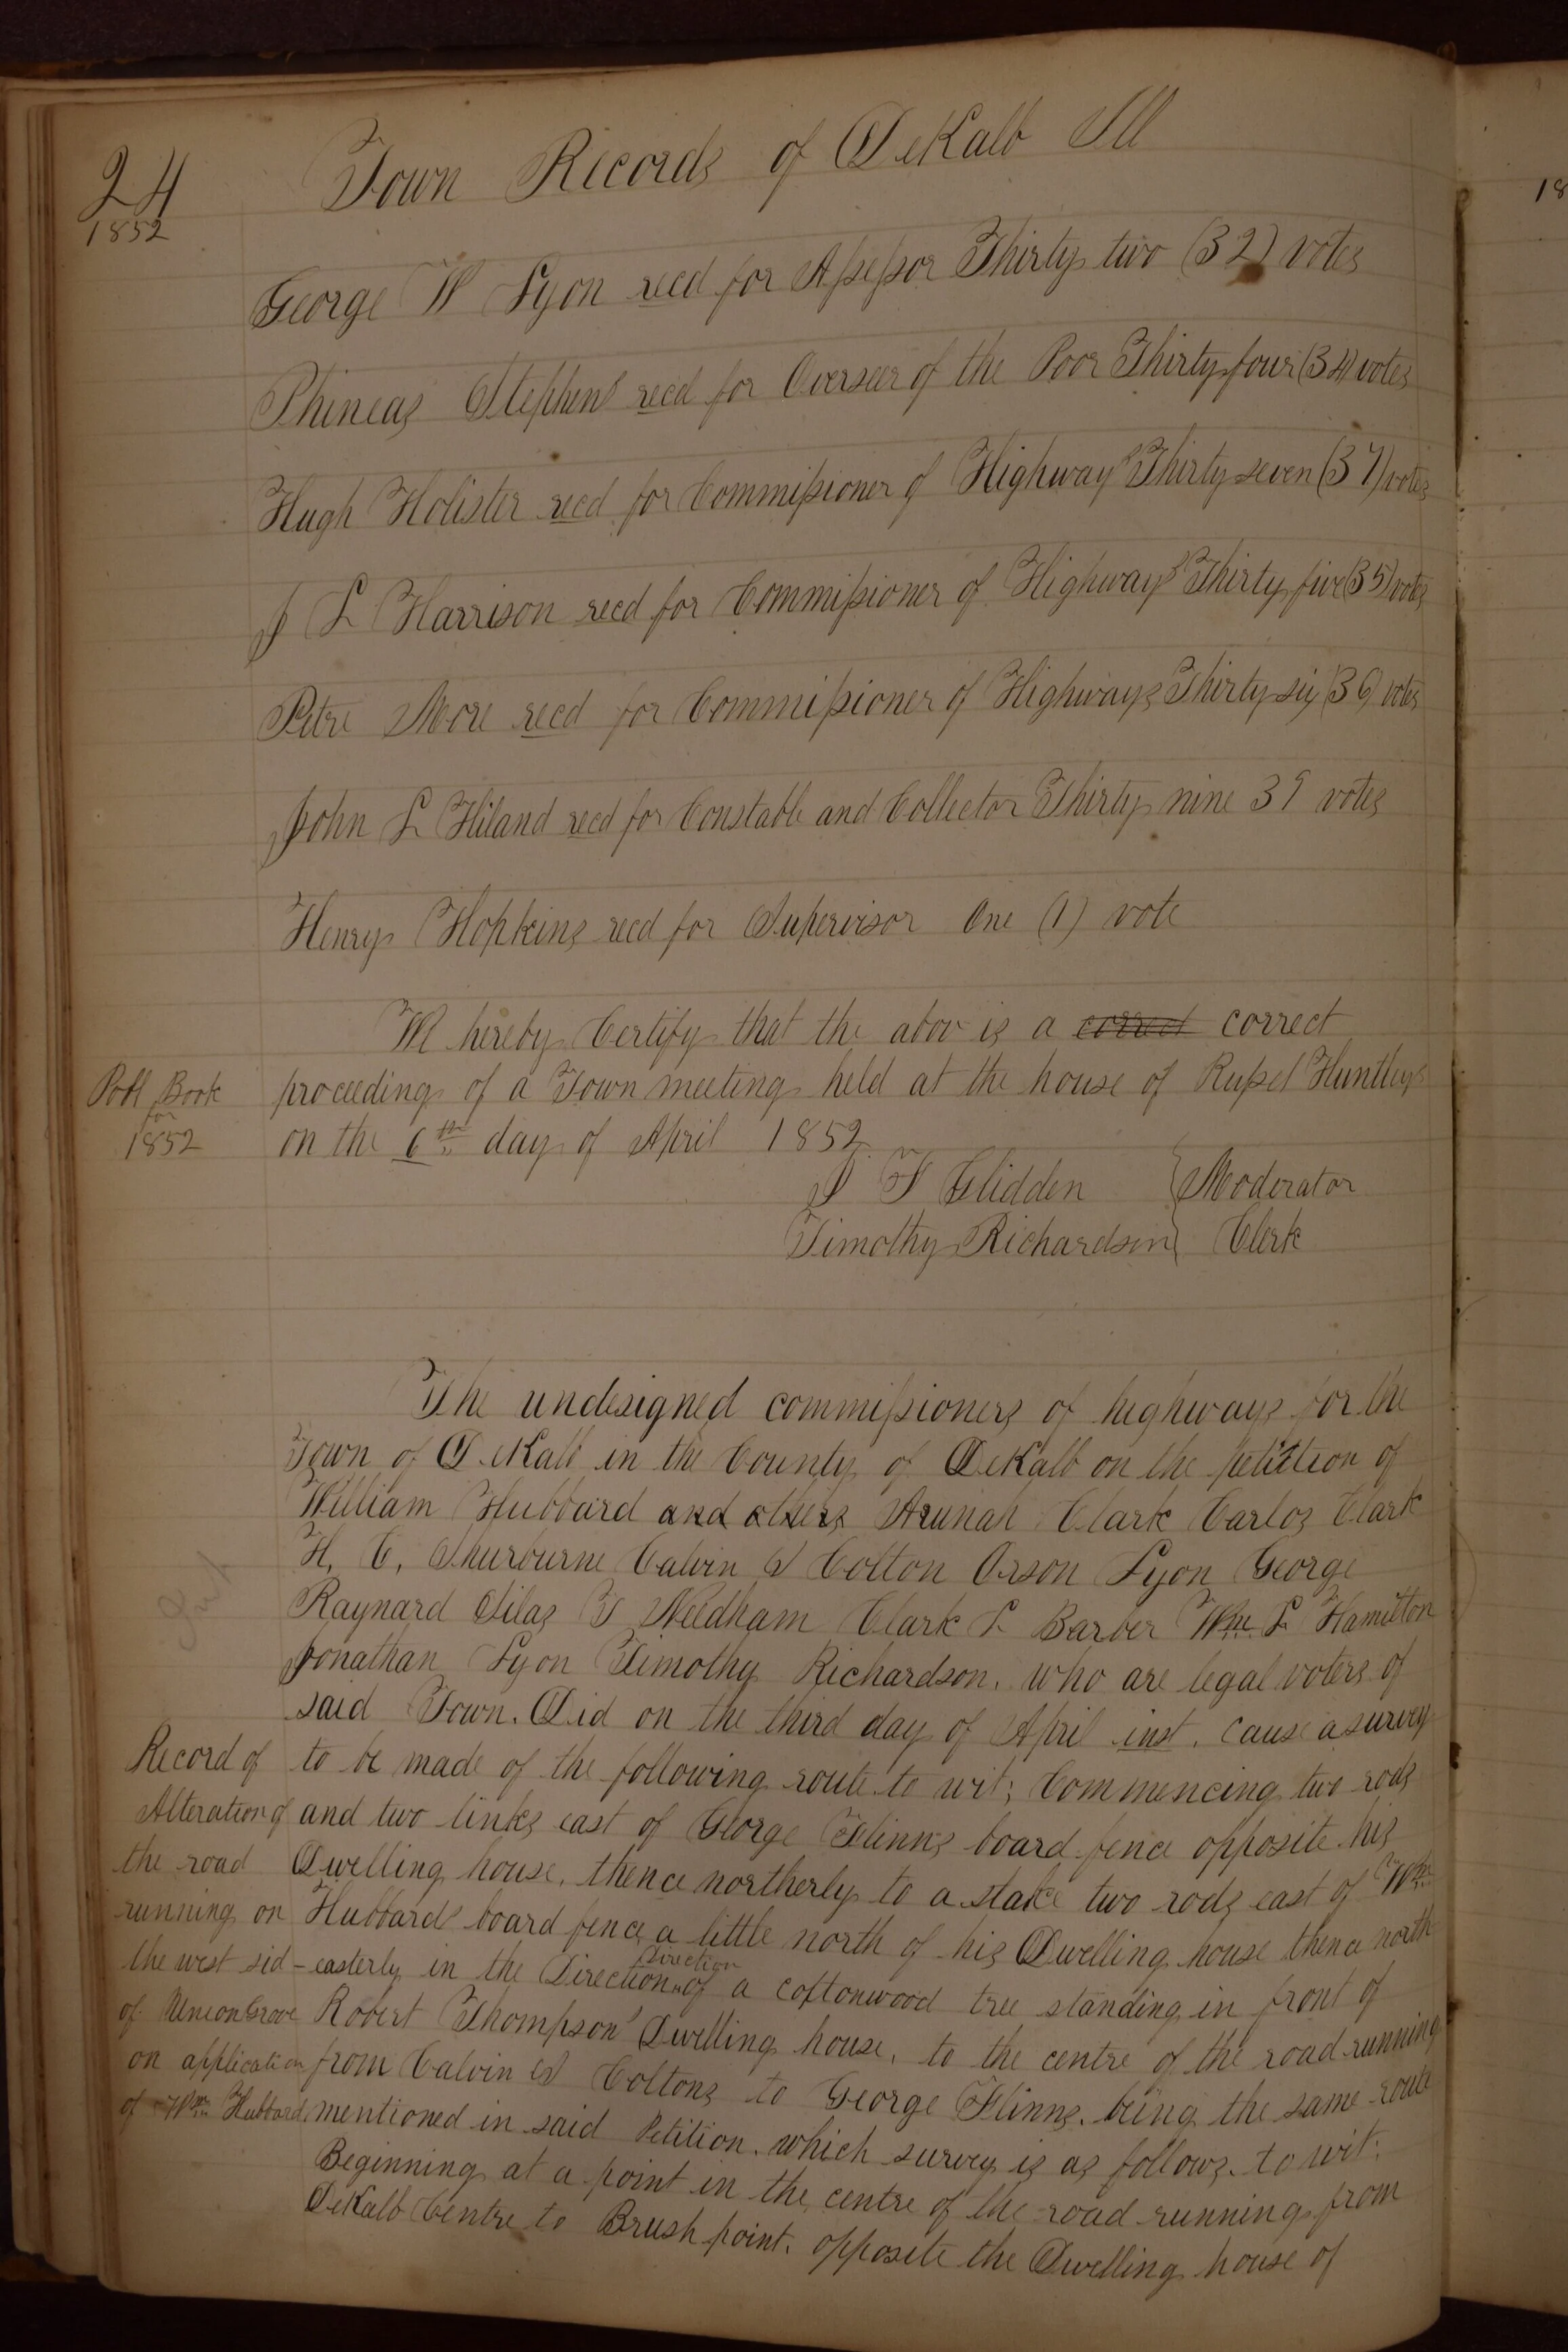 24
1852
Town Records of DeKalb Ill
George W Lyon recd for Assessor Thirty two (32) votes
Phineas Stephens recd for Overseer of the Poor Thirty four (34) votes
Hugh Holister recd for Commissioner of Highways Thirty seven (37) votes
J L Harrison recd for Commissioner of Highways Thirty five (35) votes
Petre More recd for Commissioner of Highways Thirty six (36) votes
John L Hiland recd for Constable and Collector Thirty nine 39 votes
Henry Hopkins recd for Supervisor One (1) vote
We hereby Certify that the abov is a correct correct
Poll Book for 1852
proceeding of a Town meeting held at the house of Russel Huntley
on the 6th day of April 1852
J F Glidden } Moderator
Timothy Richardson } Clerk
The undesigned commissioners of highways for the
Town of DeKalb in the County of DeKalb on the petition of
William Hubbard and others Arunah Clark Carlos Clark
H. C. Shurburne Calvin S Colton Orson Lyon George
Raynard Silas T Needham Clark L Barber Wm L Hamilton
Jonathan Lyon Timothy Richardson. who are legal voters of
said Town. Did on the third day of April inst. cause a survey
to be made of the following route to wit; Commencing two rods
and two links east of George Flinns board fence opposite his
Dwelling house, thence northerly to a stake two rods east of Wm
Hubbards board fence a little north of his Dwelling house thence north
-easterly in the Direction Direction of a cottonwood tree standing in front of
Robert Thompsons Dwelling house, to the centre of the road running
from Calvin S Coltons to George Flinns. being the same route
mentioned in said Petition. which survey is as follows. to wit:
Beginning at a point in the centre of the road running from
DeKalb Centre to Brush point. opposite the Dwelling house of
Record of
Alteration of
the road
running on
the west sid
of Union Grove
on application
of Wm Hubbard